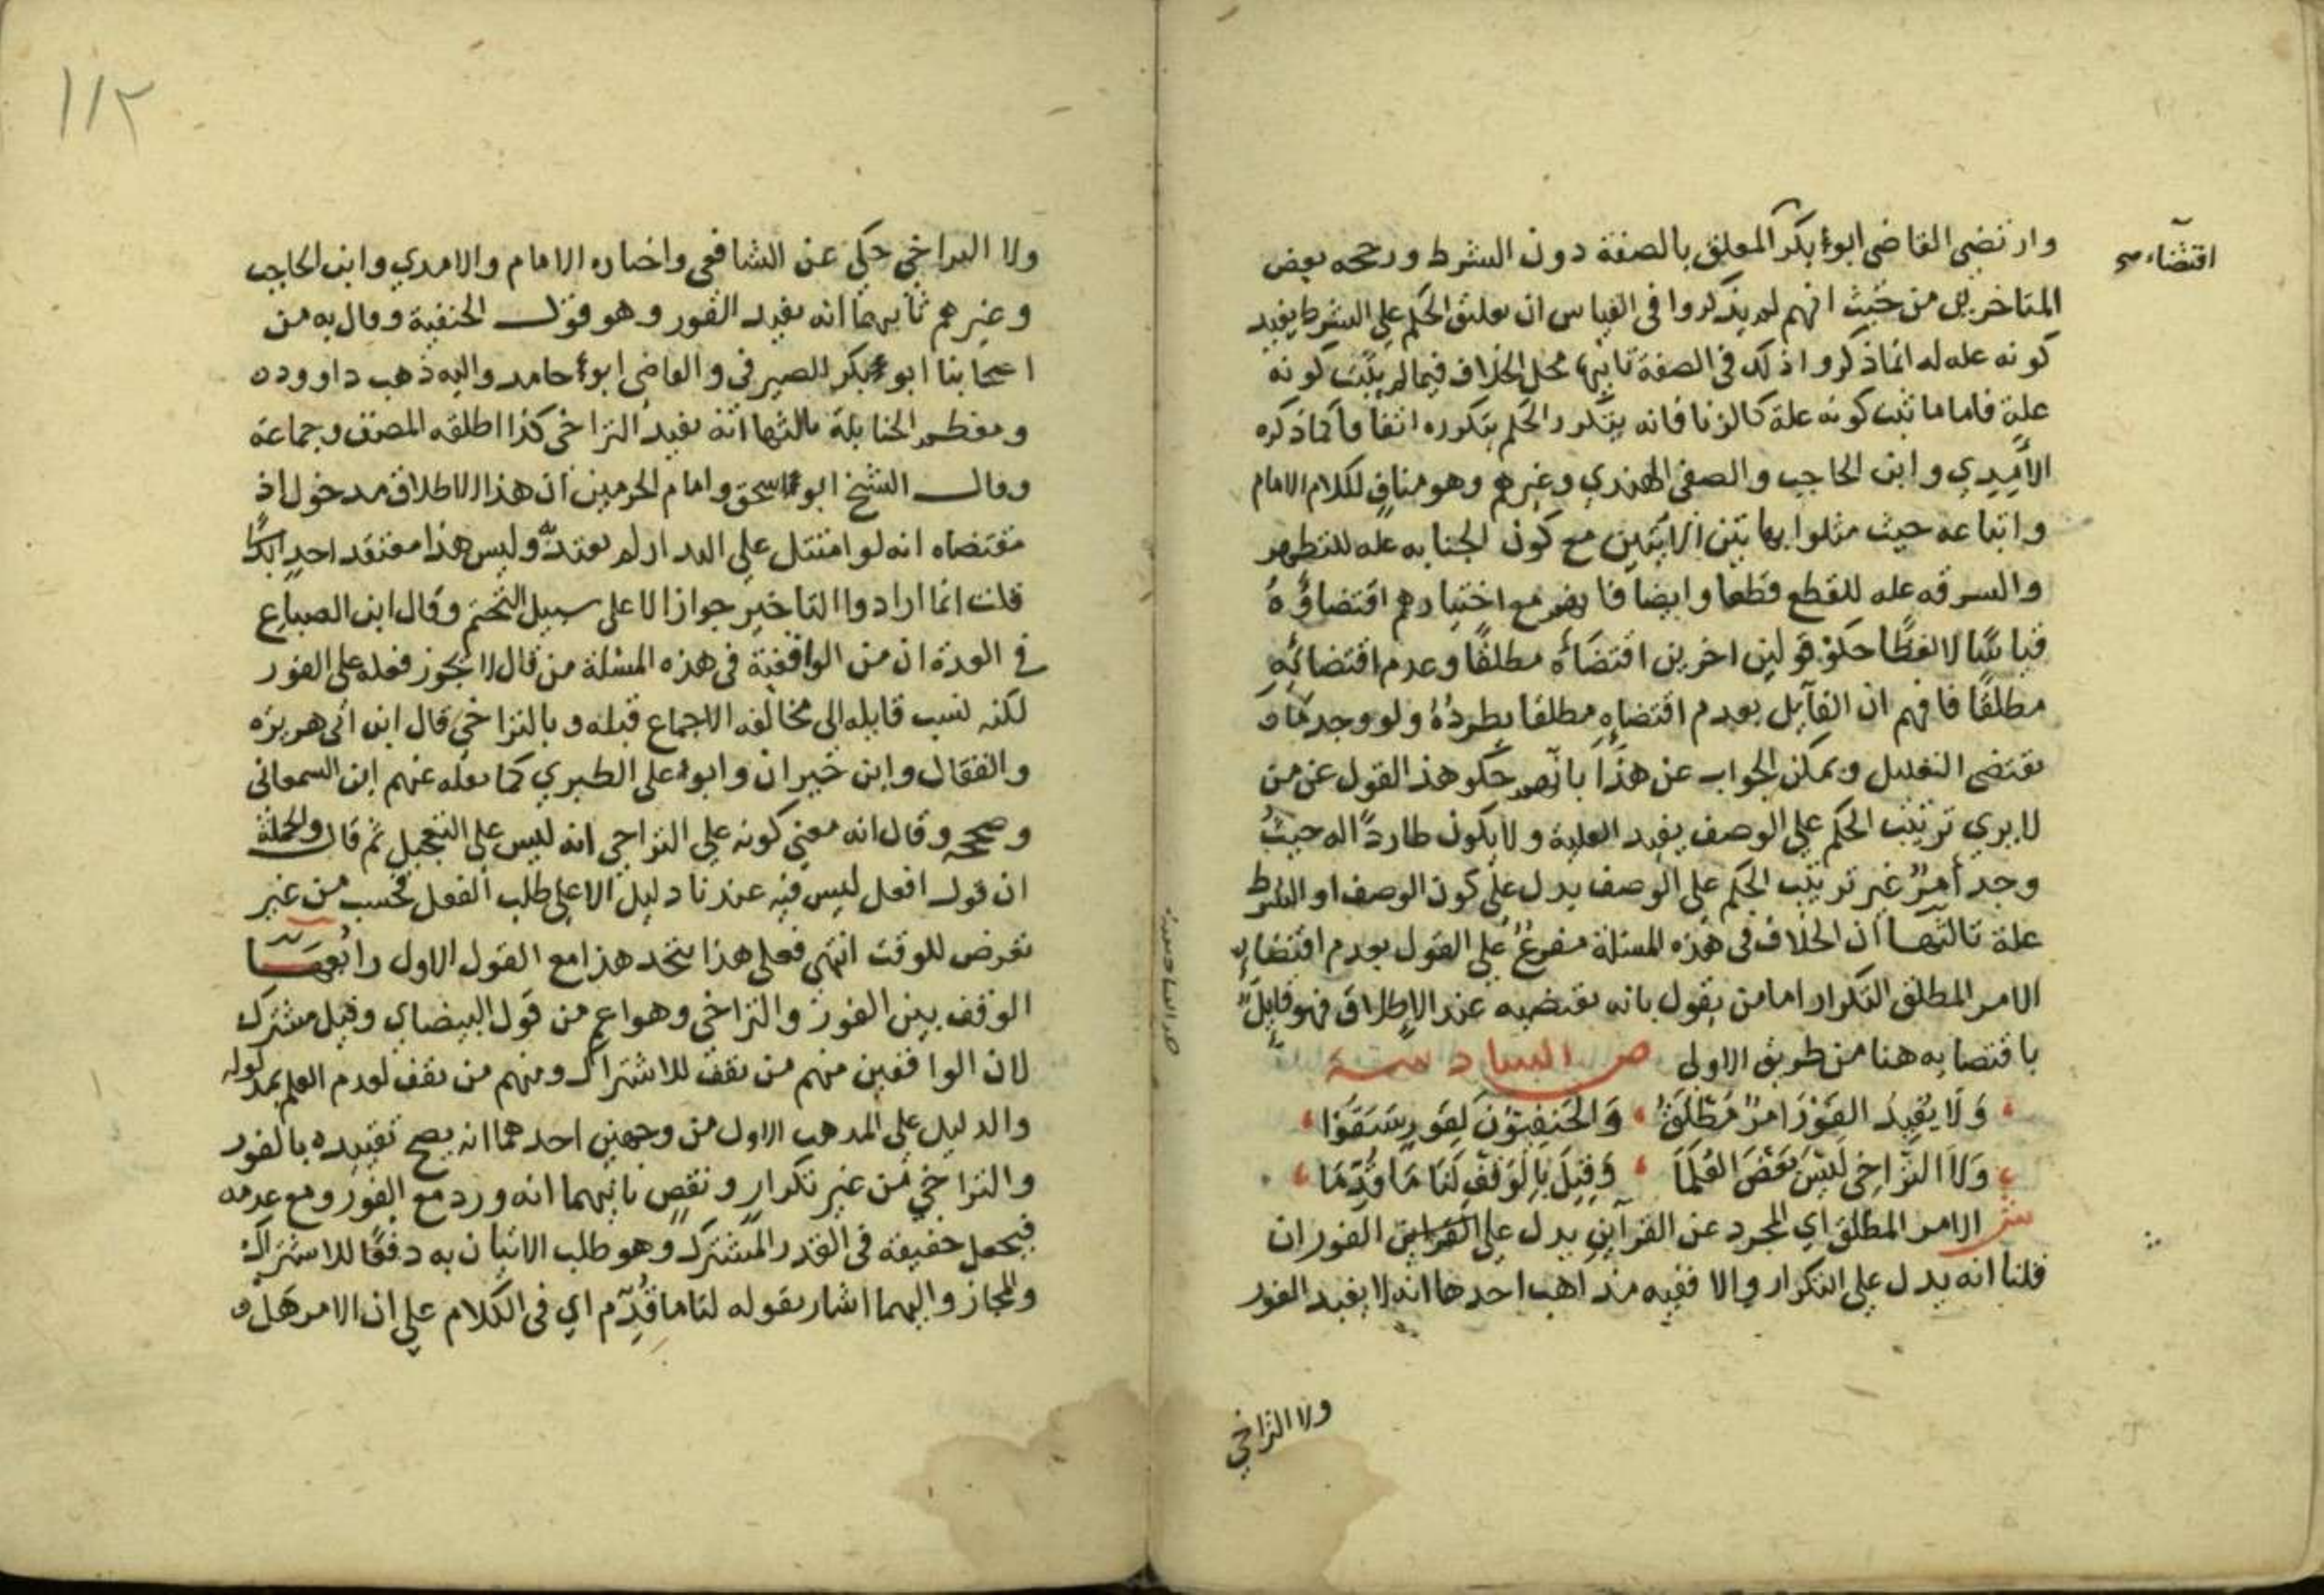 اقتضاء صح
وارتضى القاضي ابو بكر المعلق بالصفة دون الشرط ورجحه بعض
المتاخرين من حيث انهم لم يذكروا في القياس ان تعليق الحكم على الشرط يفيد
كونه علة له انما ذكروا ذلك في الصفة ثانيها محل الخلاف فيما لم يثبت كونه
علة فاما ما ثبت كونه علة كالزنا فانه يتكرر الحكم بتكرره اتفاقا كما ذكره
الآمدي وابن الحاجب والصفي الهندي وغيرهم وهو مناف لكلام الامام
واتباعه حيث مثلوا بهاتين الآيتين مع كون الجنابه علة للتطهر
والسرقه علة للقطع قطعا وايضا فانهم مع اختيارهم اقتضاؤه
قياسا لا لفظا حكوا قولين اخرين اقتضاءه مطلقا وعدم اقتضائه
مطلقا فافهم ان القايل بعدم اقتضاءه مطلقا يطرده ولو وجد ما
يقتضي التعليل ويمكن الجواب عن هذا بانهم حكوا هذ القول عن من
لا يرى ترتيب الحكم على الوصف يفيد العلية ولا يكون طاردا له حيث
وجد أمر غير ترتيب الحكم على الوصف يدل على كون الوصف او الشرط
علة ثالثها ان الخلاف في هذه المسئلة مفرع على القول بعدم اقتضاء
الامر المطلق التكرار اما من يقول بانه يقتضيه عند الاطلاق فهو قايل
باقتضايه هنا من طريق الاولى ص السادسة
وَلَا يُفِيدُ الفَوْرَ امرٌ مُطْلَقُ ، وَالحَنَفِيّوْنَ لِفَورٍ سَبَقُوا ،
وَلاَ التَّرَاخِي لَيْسَ بَعْضَ العُلَمَا ، وَقِيلَ بِالْوَقْفِ لَنَا مَا قُدِّمَا ،
ش الامر المطلق اي المجرد عن القرآين يدل على القراين الفور ان
قلنا انه يدل على التكرار والا ففيه مذاهب احدها انه لا يفيد الفور
ولا التراخي
١١٢
ولا التراخي حكي عن الشافعي واختاره الامام والامدي وابن الحاجب
وغيرهم ثانيهما انه يفيد الفور وهو قول الحنفية وقال به من
اصحابنا ابو بكر الصيرفي والقاضي ابو حامد واليه ذهب داوود
ومعظم الحنابلة ثالثها انه يفيد التراخي كذا اطلقه المصنف وجماعة
وقال الشيخ ابو اسحق وامام الحرمين ان هذا الاطلاق مدخول اذ
مقتضاه انه لو امتثل على البدار لم يعتد به وليس هذا معتقد احد ابدا
قلت انما ارادوا التاخير جوازا لا على سبيل التحتم وقال ابن الصباغ
في العدة ان من الواقفية في هذه المسئلة من قال لا تجوز فعله على الفور
لكنه نسب قايله الى مخالفه الاجماع قبله وبالتراخي قال ابن ابي هريره
والقفال وابن خيران وابو على الطبري كما نقله عنهم ابن السمعاني
وصححه وقال انه معنى كونه على التراخي انه ليس على التعجيل ثم قال والجملة
ان قول افعل ليس فيه عندنا دليل الا على طلب الفعل فحسب من غير
تعرض للوقت انتهى فعلى هذا يتحد هذا مع القول الاول رابعها
الوقف بين الفور والتراخي وهو اعم من قول البيضاي وقيل مشترك
لان الواقفين منهم من يقف للاشتراك ومنهم من يقف لعدم العلم بمدلوله
والدليل على المذهب الاول من وجهين احدهما انه يصح تقييده بالفور
والتراخي من غير تكرار ونقص ثانيهما انه ورد مع الفور ومع عدمه
فيجعل حقيقة في القدر المشترك وهو طلب الاتيان به دفعا للاشتراك
والمجاز واليهما اشار بقوله لنا ما قُدِّم اي في الكلام على ان الامر هل